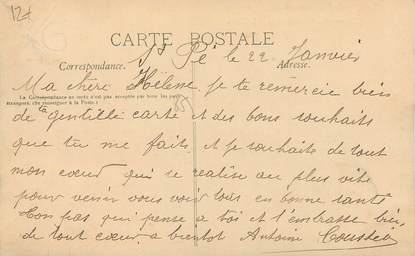 12+
CARTE POSTALE
St Pé le 22 Janvier
Correspondance. Adresse.
Ma chère Hélène je te remercie bien
La Correspondance au recto n'est pas acceptée par tous les pays
étrangers. (Se renseigner à la Poste.)
de ta gentille carte et des bons souhaits
que tu me faits et je souhaits de tout
mon cœur qu'il se réalise au plus vite
pour venir vous voir tous en bonne santé
Ton pas qui pense a toi et t'embrasse bien
de tout cœur a bientot Antoine